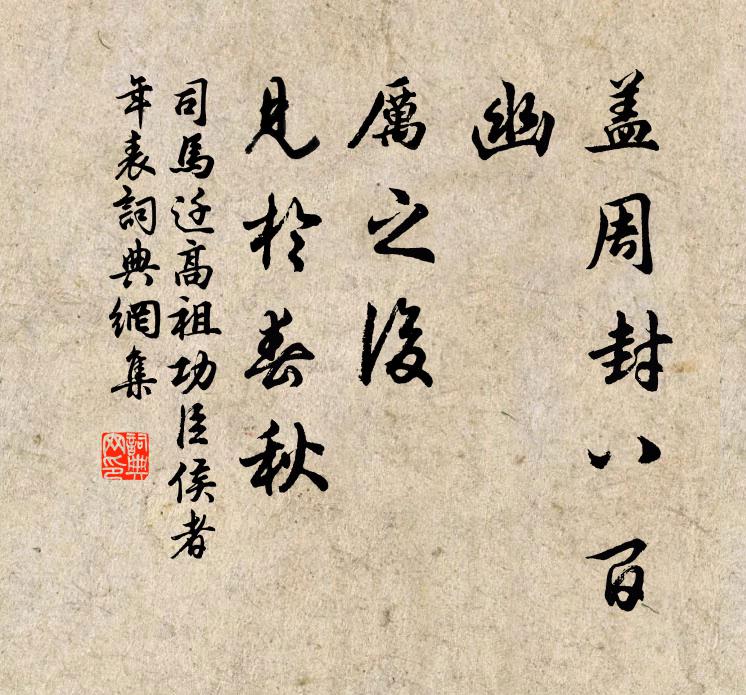 盖周封八百
幽
厲之後
見於春秋
司馬迁高祖功臣侯者
年表詞典網集
詞典网印